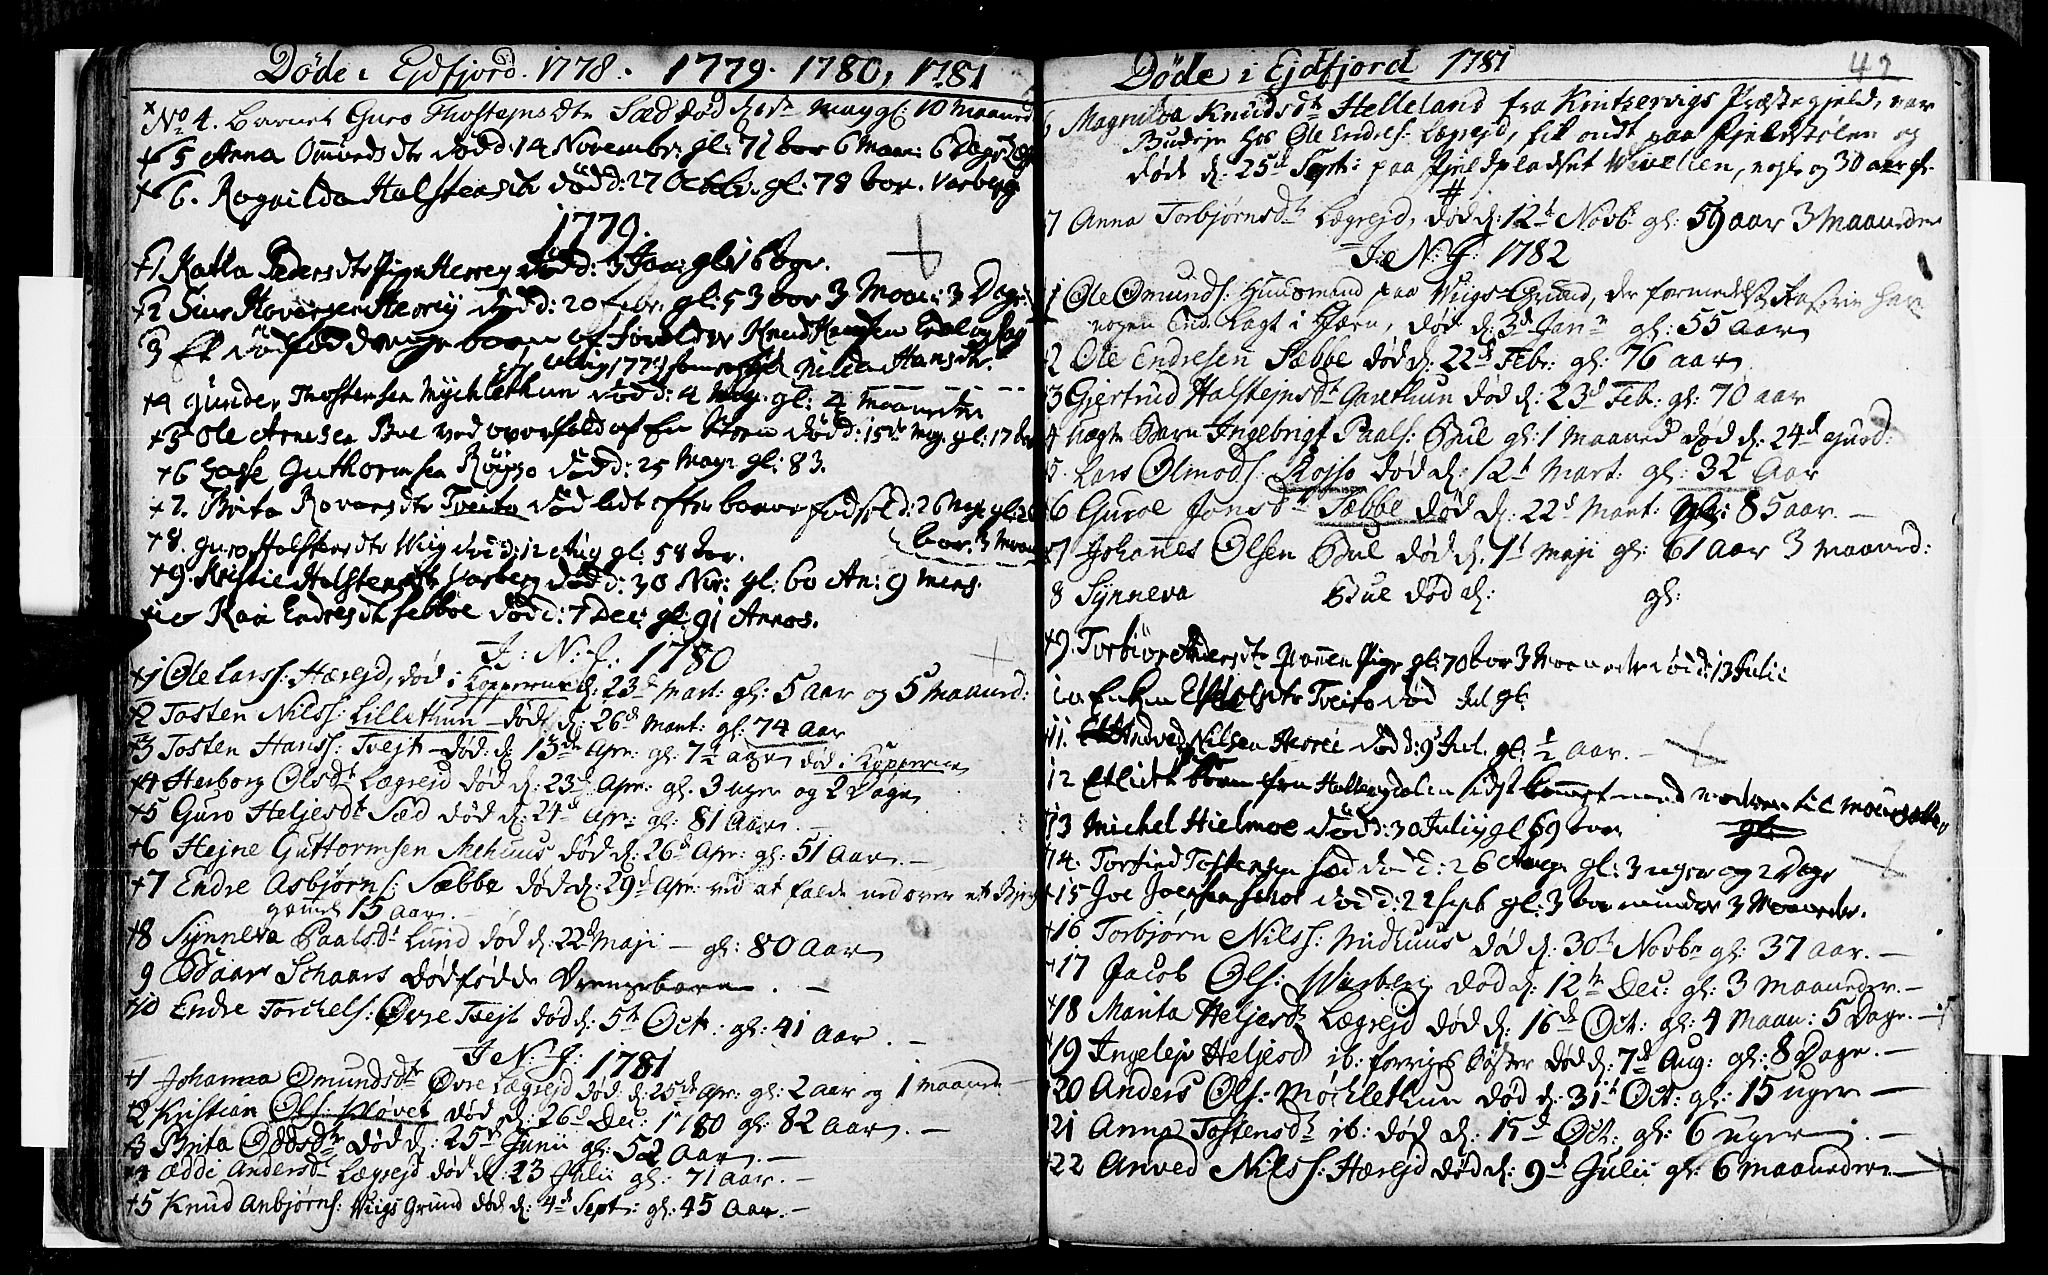 Døde i Ejdfjord. 1778. 1779. 1780, 1781
No 4. barnet Guro Thostejnsdtr Sæd død May gl: 10 Maaned
+ 5 Anna Omundsdtr død d: 14 Novembr: gl: 71 6 Maan: 6 Dage
+ 6. Ragnilda Halstensdtr død d: 27 Octobr. gl: 78 Aar. Varberg
1779.
+1 Katla Pedersdtr Pige Herrey død d: 3 Jan: gl: 16
+2 Siur Herrey død d: 20 Febr. gl: 53 Aar 3 Maan: 3 Dage
3 Et dødfød drenge barn af Forældre Knud Hansen
Hansdtr.
+4 Gunder Thostensen Myklethun død d: 4 May. gl: 4 Maaneder
+5 Ole Arnesen Bue ved af En død d: 15de May. gl: 17 Aar
+6 Lasse Guthormsen Røysso død d: 25 May gl: 83.
+7. Brita Tveito død lidt efter barne fødsel d: 26 May gl:
Aar. 3 Maan
+8. Guro Halstensdtr Wiig død d: 12 Aug gl: 58 Aar.
+9. Kristie Halstensdtr Varberg død d: 30 Nov: gl: 60 An: 9 Mens.
+10 Kari Endresdtr Sebbe død d: 7 Dec: gl: 91 Annos.
J: N: J: 1780
+1 Ole Larss: Hærejd, død i Kopperne d: 23de Mart: gl: 5 Aar og 5 Maaned:
+2 Tosten Nilss: Lillethun døde d: 26d Mart: gl: 74 Aar
+3 Tosten Hanss: Tvejt død: d: 13de Apr: gl: 7½ Aar død i Kopperne
+4 Herborg Olsdt Lægrejd død d: 23d Apr: gl. 3 uger og 2 Dage
+5 Guro Heljesdt Sæd død d: 24d Apr: gl: 81 Aar. —
+6 Hejne Guttormsen Mehuus død d: 26d Apr: gl: 51 Aar. —
+7 Endre Asbjørns: Sæbbe død d: 29d Apr: ved at falde ned over et Bjerg
gammel 15 Aar. —
+8 Synneva Paalsdt Lund død d: 22d Maji — gl: 80 Aar
9 Oddaar Schaars dødfødde Drengebarn. —
+10 Endre Torchels: Øvre Tvejt død d: 5t Oct: gl: 41 Aar. —
J: N: J: 1781
+1 Johanna Omundsdtr Øvre Lægrejd død d: 25de Apr: gl: 2 Aar og 1 Maaned —
+2 Kristian Ols: død d: 26d Dec: 1780 gl: 82 Aar. —
+3 Brita Oddsdtr død d: 25de Junii gl: 52 Aar. —
+4 Ædde Andersdt Lægrejd død d: 23 Julii gl: 71 Aar. —
+5 Knud Anbjørns: Wiigs Grund død d: 4d Sept: gl: 45 Aar. —
Døde i Ejdfjord 1781
42
6 Magnilda Knudsdt Helleland fra Kintzervigs Præstegjeld, var
Budeje hos Ole Endres: Lægrejd, fik ondt paa Fjeldstølen og
døde d: 25de Sept: paa Fjeldpladset Wivelien, nogle og 30 aar gl.
7 Anna Torbjørnsdt Lægrejd, død d: 12t Novb: gl: 59 aar 3 Maaneder
J: N: J: 1782
1 Ole Omunds: Huusmand paa Wiigs-Grund, der formedelst
nogen lagt i Jern, død d: 3d Janr gl: 55 Aar
+2 Ole Endresen Sæbbe død d: 22d Febr: gl: 76 aar
+3 Gjertrud Halstejnsdt Garethun død d: 23d Feb: gl: 70 aar
+4 Ægte Barn Ingebrigt Paals: Bue gl: 1 Maaned død d: 24d ejusd:
+5. Lars Olmods: Rojso død d: 12t Mart: gl: 32 Aar
+6 Guroe Jonsdt Sæbbe død d: 22d Mart: gl: 85 aar. —
+7 Johannes Olsen Bue død d: 1t Maji gl: 61 Aar 3 Maaned:
8 Synneva Bue død d: gl:
+9. Torbiør Andersdtr Pige gl: 70 Aar 3 Maaneder død d: 13 Julii
10 Enken Tveito død Jul gl:
+11. Andved Nilsen Herrei død d: 9d Jul. gl: ½ Aar. —
12 Et lidt barn fra Hallingdalen sidst kommet med moderen til
+13 Michel Hielmoe død d: 30 Julii gl 69 Aar
+14. Torfind Tostensen Sæd død d: 26 Aug gl: 3 uger og 2 Dage
+15 Joe død d: 22 Sept gl: 3 Aar mindre 3 Maaneder.
+16 Torbjørn Nilss: Midhuus død d: 30t Novbr gl: 37 aar. —
+17 Jacob Ols: Warberg død d: 12te Dec: gl: 3 maaneder. —
+18 Marita Heljesdt Lægrejd død d: 16de Oct: gl: 4 Maan: 5 Dage. —
+19 Ingelej Heljesd ib: forriges Søster død d: 7d Aug: gl: 8 Dage. —
+20 Anders Ols: Møchlethun død d: 31t Oct: gl: 15 uger —
+21 Anna Tostensdt ib: død d: 15d Oct: gl: 6 uger. —
+22 Anved Nilss: Hærejd død d: 9d Julii gl: 6 maaneder —